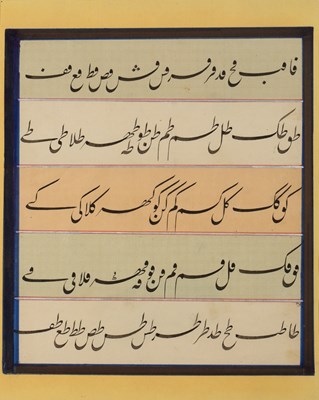 فا فب فح فد فر فس فش فص فط فع فف
طق طک طل طم طم طن طو طه طهر طلا طی طے
کو کک کل کم کم کن کو کهر کلا کی کے
فق فک فل فم فم فن فو فه فهر فلا فی فے
طا طب طح طد طر طس طس طص طط طع طف